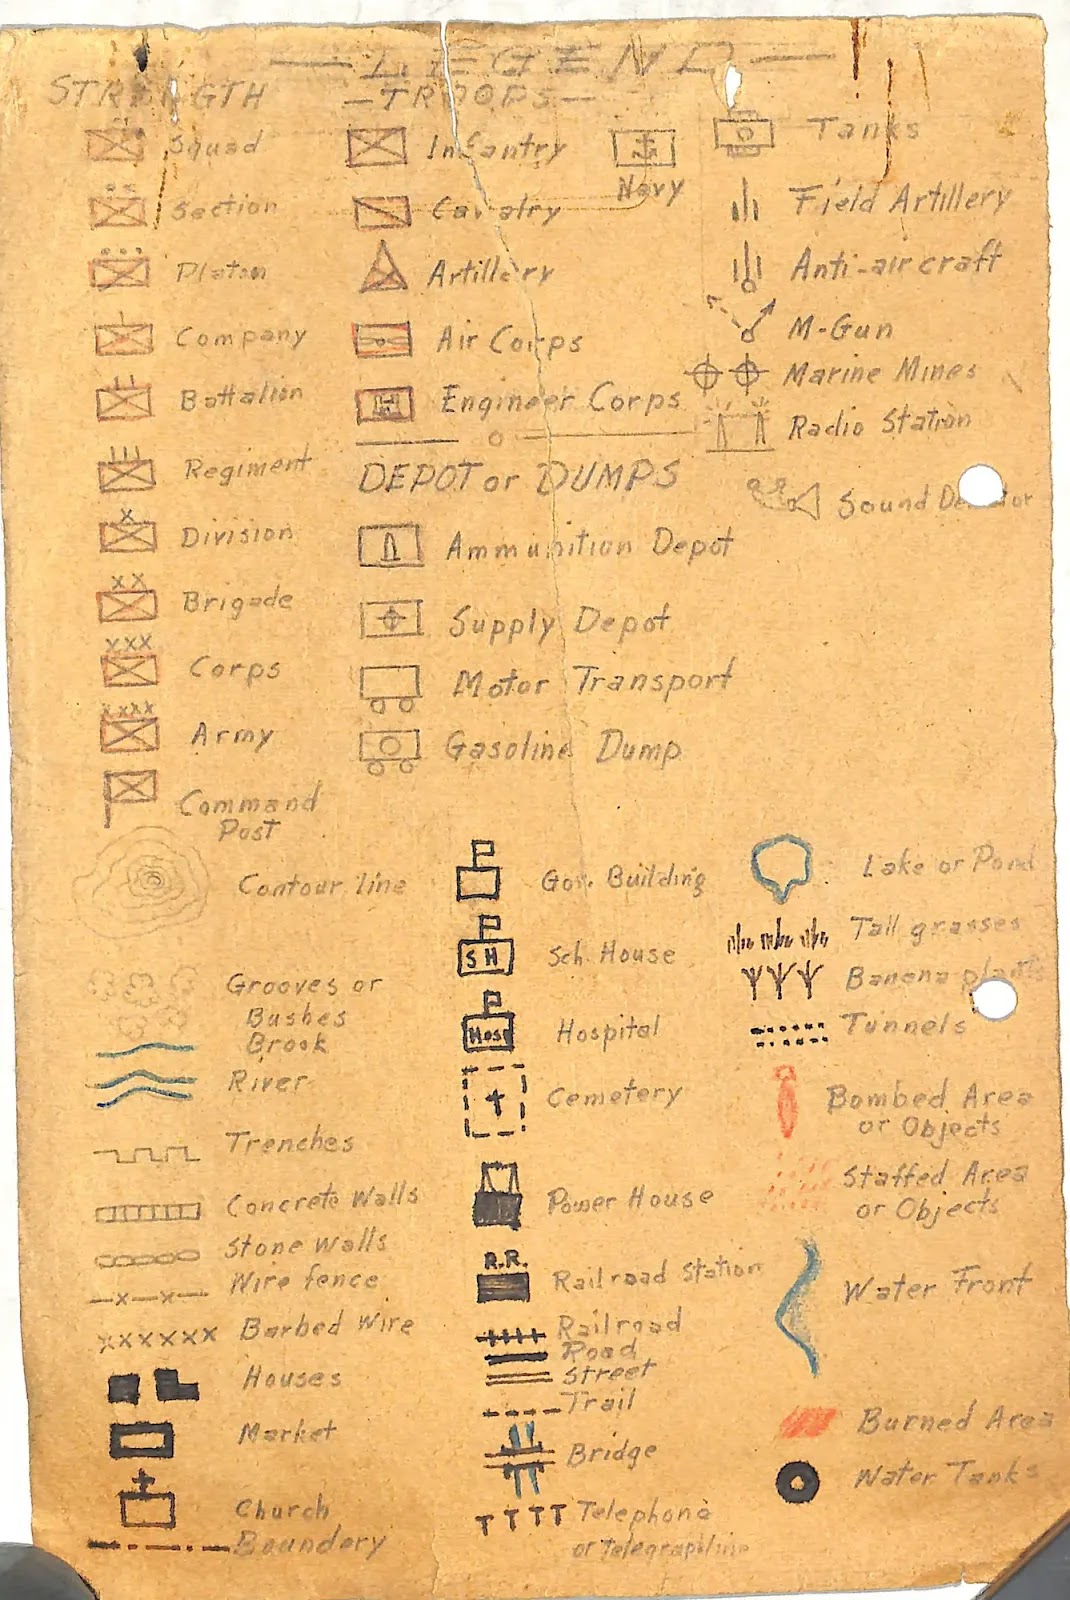 LEGEND
STRENGTH
Squad
Section
Platon
Company
Battalion
Regiment
Division
Brigade
Corps
Army
Command
Post
-TROOPS-
Infantry
Cavalry
Artillery
Air Corps
Engineer Corps
Navy
Tanks
Field Artillery
Anti-aircraft
M-Gun
Marine Mines
Radio Station
Sound
DEPOT or DUMPS
Ammunition Depot
Supply Depot
Motor Transport
Gasoline Dump
Contour line
Grooves or
Bushes
Brook
River
Trenches
Concrete Walls
Stone Walls
Wire fence
Barbed Wire
Houses
Market
Church
Boundery
Gov. Building
SH
Sch. House
Hosp
Hospital
Cemetery
Power House
R.R.
Railroad Station
Railroad
Road
Street
Trail
Bridge
T T T T Telephone
or Telegraph line
Lake or Pond
Tall grasses
Banana plants
Tunnels
Bombed Area
or Objects
Staffed Area
or Objects
Water Front
Burned Area
Water Tanks